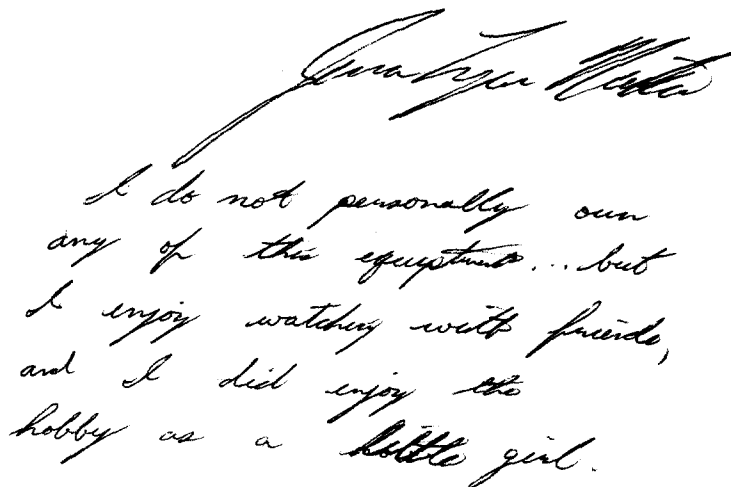 I do not personally own
any of this equiptment...but
I enjoy watching with friends,
and I did enjoy the
hobby as a little girl.